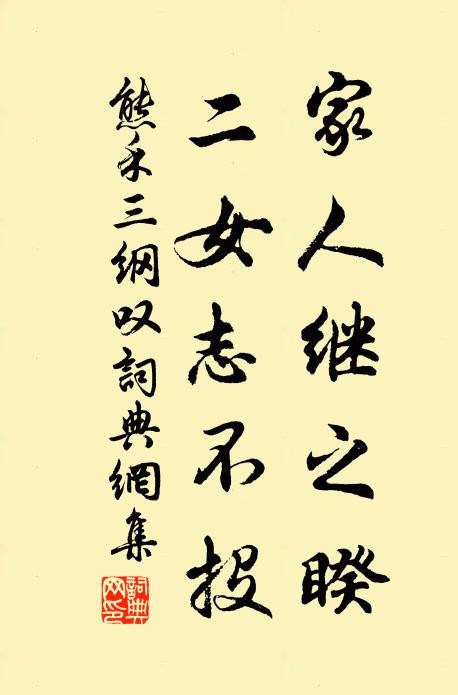 家人继之睽
二女志不投
熊禾三纲叹詞典網集
詞典网印